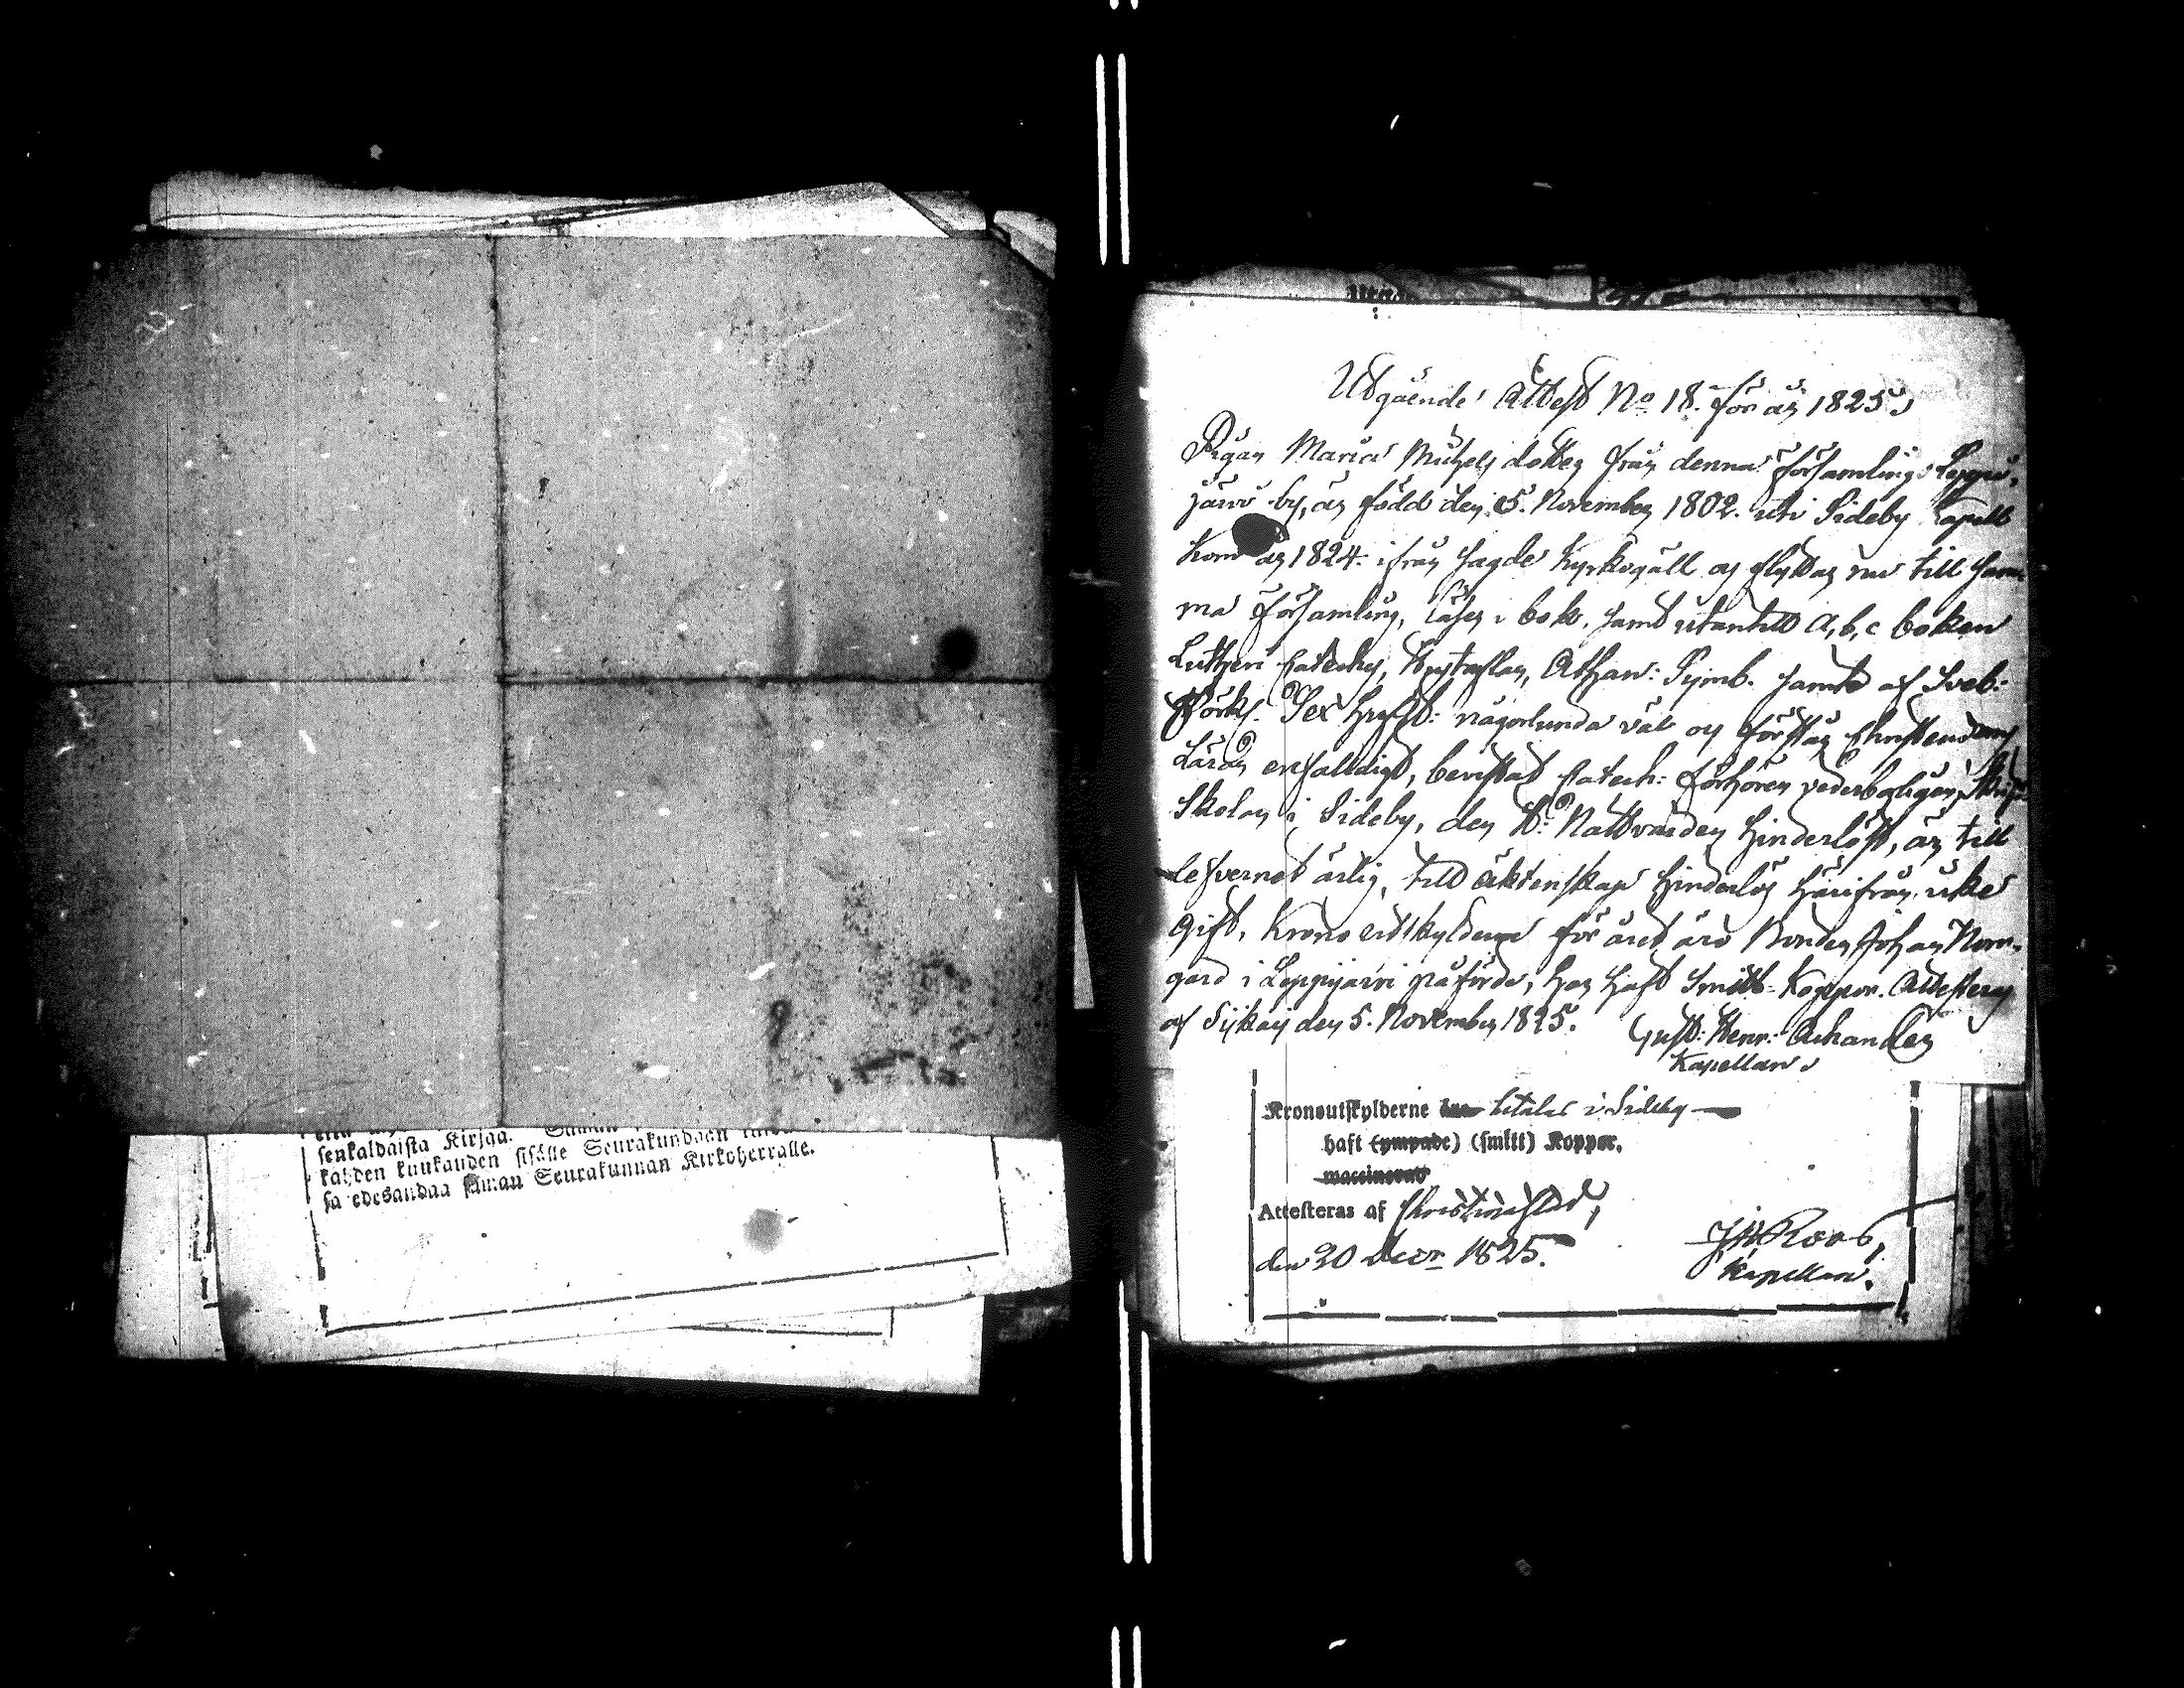 senkaldaista Kirjaa.
kahden kuukauden sisälle Seurakundaan
sa edesandaa saman Seurakunnan Kirkoherralle.
Utgående Attest No 18. för år 1825.
Pigan Maria Michels dotter från denna Församlings Leppi-
järvi by, är född den 5. November 1802. uti Sideby Capell
Kom år 1824. ifrån sagde Kyrkogäll och flyttar nu till sam-
ma Församling, läser i bok, samt utantill a, b, c boken
Lutheri Cateches, Hustaflan, Athan: Symb. samt af Sveb:
Förkl. Sex någorlunda väl och förstår Christendoms
Läran enfalldigt, bevistat Catech: förhören vederbörligen, Skrift
Skolan i Sideby, den H: Nattvarden hinderlöst, är till
lefvernet ärlig, till äktenskap hinderlös härifrån, icke
Gift, Krono utskylderne för året äro Bonden Johan Norr-
gård i Leppijärvi påförde, har haft Smitt-Koppor. Attesteras
af Sijkaj den 5. November 1825. Gust: Henr: Achander
Kapellan
Kronoutskylderne betalas i Sideby
haft (ympade) (smitt) Koppor.
vaccinerad
Attesteras af Christinestad,
den 20 Decr 1825. Roos,
Kapellan.